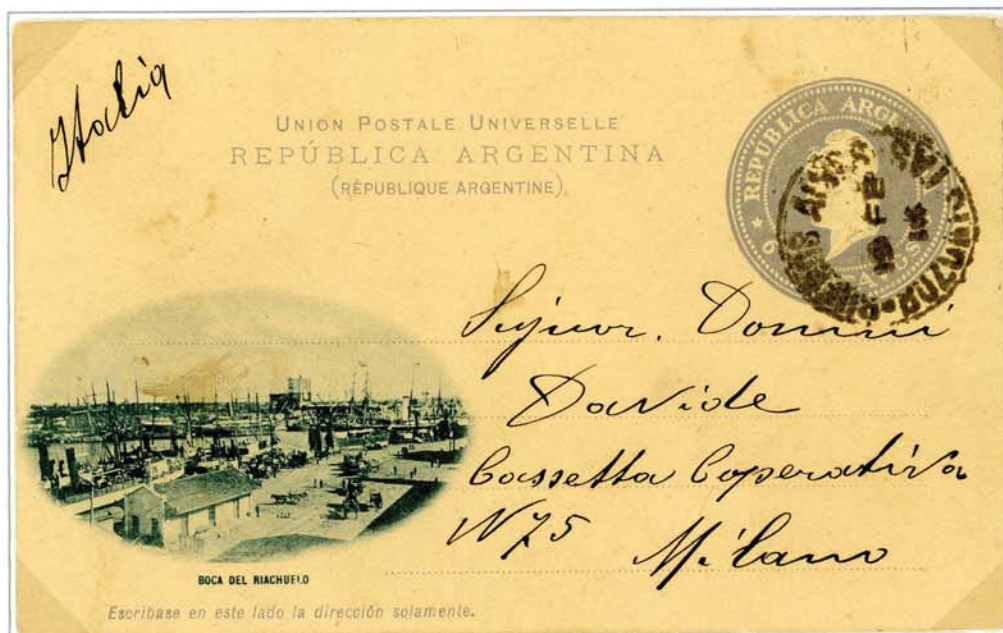 Italia
UNION POSTALE UNIVERSELLE
REPÚBLICA ARGENTINA
(RÉPUBLIQUE ARGENTINE)
REPUBLICA ARGE
BUENOS AIRES
FE
Donini
Davide
Cassetta Coperativa
N 75
Milano
BOCA DEL RIACHUELO
Escríbase en este lado la dirección solamente.